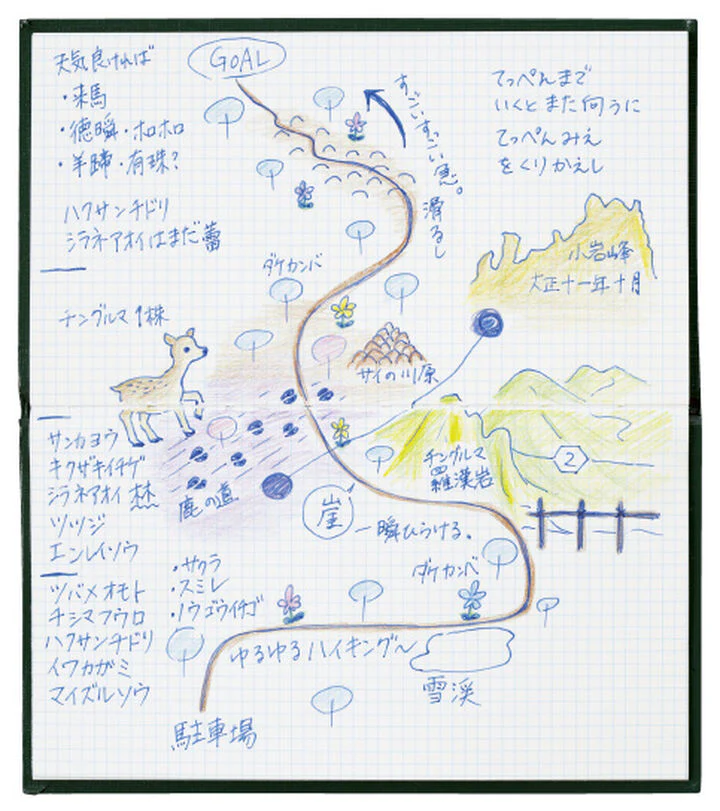 天気良ければ
・来馬
・徳瞬・ホロホロ
・羊蹄・有珠?
ハクサンチドリ
シラネアオイはまだ蕾
GOAL
すごいすっごい急。
滑るし
てっぺんまで
いくとまた向うに
てっぺんみえ
をくりかえし
小岩峰
大正十一年十月
ダケカンバ
チングルマ1株
サイの川原
サンカヨウ
キクザキイチゲ
シラネアオイ
ツツジ
エンレイソウ
鹿の道
崖
一瞬ひらける。
チングルマ
羅漢岩
2
ツバメオモト
チシマフウロ
ハクサンチドリ
イワカガミ
マイズルソウ
・サクラ
・スミレ
・ノウゴウイチゴ
ダケカンバ
ゆるゆるハイキング〜
雪渓
駐車場